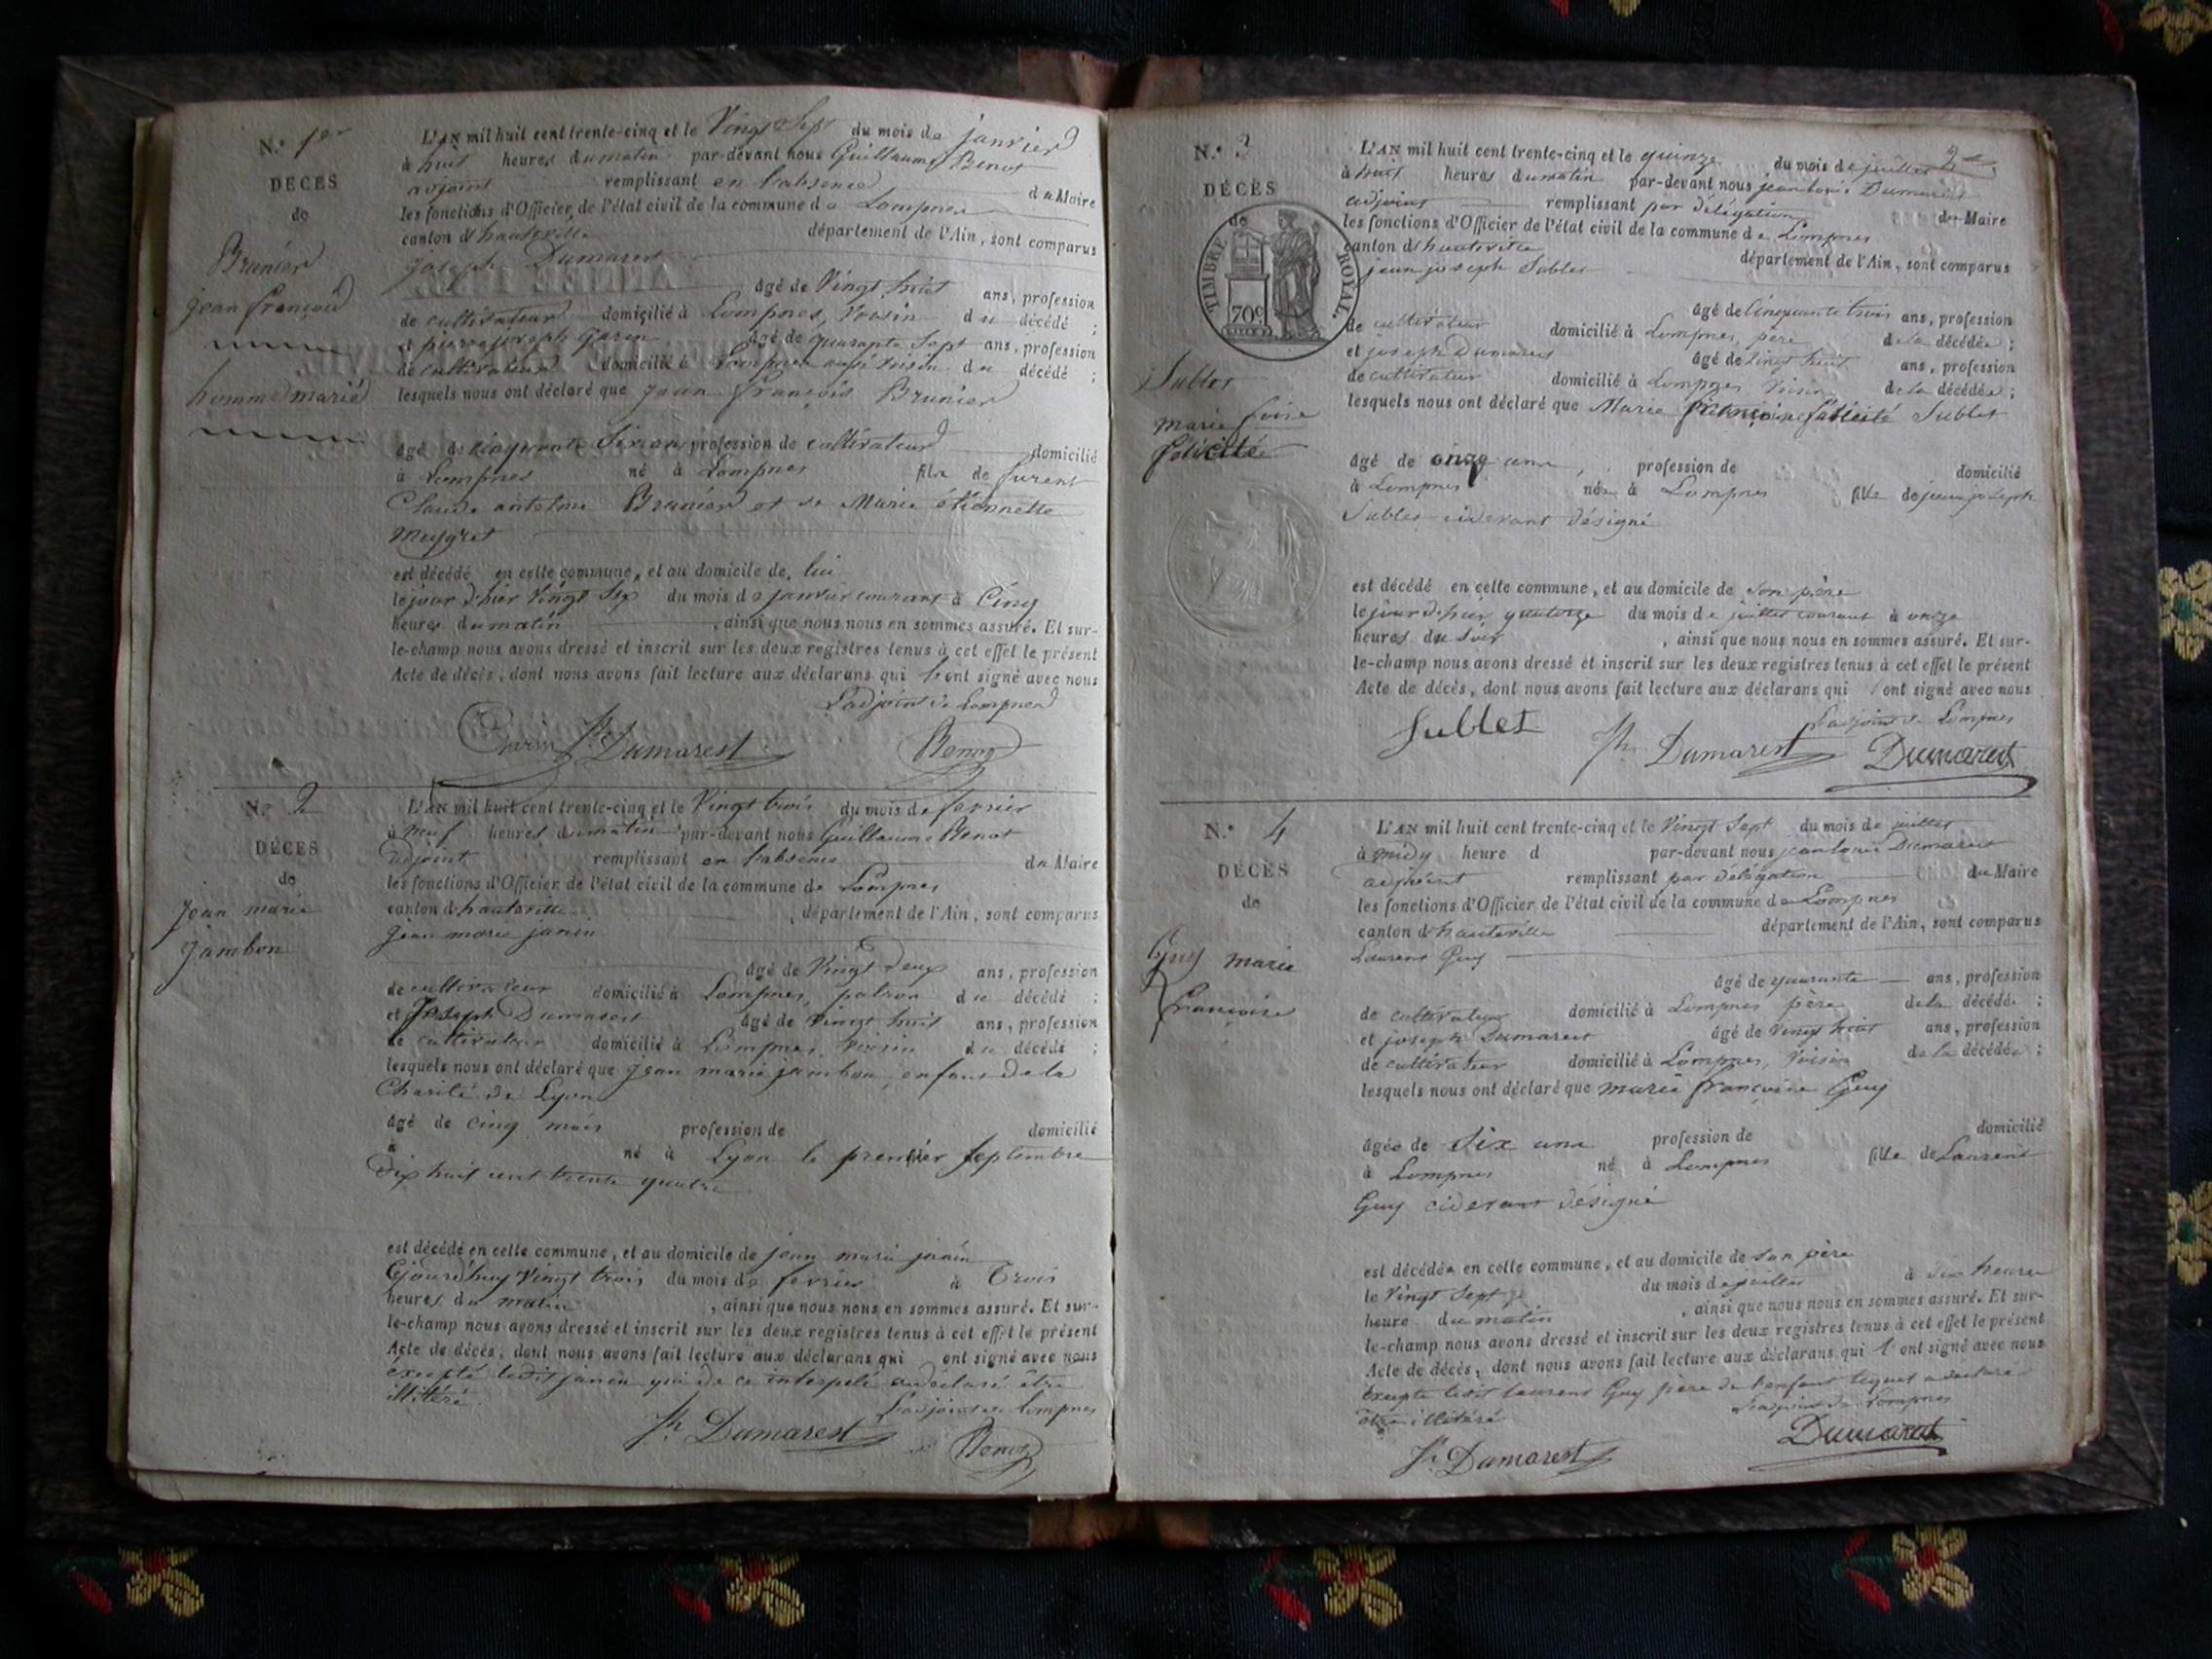 N.° 1er
DÉCÈS
de
Brunier
jean françois
homme marié
L'AN mil huit cent trente-cinq et le Vingt Sept du mois de janvier
à huit heures du matin par-devant nous Guillaume Benot
adjoint remplissant en l'absence du Maire
les fonctions d'Officier de l'état civil de la commune de Lompnes
canton d'hauteville département de l'Ain, sont comparus
Joseph Dumarest
âgé de Vingt huit ans, profession
de cultivateur domicilié à Lompnes, Voisin du décédé ;
et pierre joseph Garin âgé de quarante Sept ans, profession
de cultivateur domicilié à Lompnes aussi voisin du décédé ;
lesquels nous ont déclaré que Jean François Brunier
âgé de cinquante Six ans profession de cultivateur domicilié
à Lompnes né à Lompnes fils de furent
Claude antelme Brunier et de Marie étiennette
Meygret
est décédé en cette commune, et au domicile de lui
le jour d'hier Vingt Six du mois de janvier courant à Cinq
heures du matin , ainsi que nous nous en sommes assuré. Et sur-
le-champ nous avons dressé et inscrit sur les deux registres tenus à cet effet le présent
Acte de décès, dont nous avons fait lecture aux déclarans qui l'ont signé avec nous
L'adjoint de Lompnes
Garin Jh Dumarest Benot
N.° 2
DÉCÈS
de
Jean marie
jambon
L'AN mil huit cent trente-cinq et le Vingt trois du mois de fevrier
à neuf heures du matin par-devant nous Guillaume Benot
adjoint remplissant en l'absence du Maire
les fonctions d'Officier de l'état civil de la commune de Lompnes
canton d'hauteville , département de l'Ain, sont comparus
Jean marie janin
âgé de Vingt deux ans, profession
de cultivateur domicilié à Lompnes, patron du décédé ;
et Joseph Dumarest âgé de Vingt huit ans, profession
de cultivateur domicilié à Lompnes, Voisin du décédé ;
lesquels nous ont déclaré que Jean marie jambon, enfant de la
Charité de Lyon
âgé de cinq mois profession de domicilié
à né à Lyon le premier Septembre
dix huit cent trente quatre
est décédé en cette commune, et au domicile de jean marie janin
Cejourd'huy Vingt trois du mois de fevrier à Trois
heures du matin , ainsi que nous nous en sommes assuré. Et sur-
le-champ nous avons dressé et inscrit sur les deux registres tenus à cet effet le présent
Acte de décès, dont nous avons fait lecture aux déclarans qui ont signé avec nous
éxcepté ledit janin qui de ce interpelé a déclaré être
illitéré.
L'adjoint de Lompnes
Jh Dumarest Benot
N.° 3
DÉCÈS
de
TIMBRE ROYAL
70c
Sublet
marie
félicité
2e
L'AN mil huit cent trente-cinq et le quinze du mois de juillet
à huit heures du matin par-devant nous jean louis Dumarest
adjoint remplissant par délégation du Maire
les fonctions d'Officier de l'état civil de la commune de Lompnes
canton d'hauteville département de l'Ain, sont comparus
jean joseph Sublet
âgé de Cinquante trois ans, profession
de cultivateur domicilié à Lompnes, père de la décédée ;
et joseph Dumarest âgé de Vingt huit ans, profession
de cultivateur domicilié à Lompnes Voisin de la décédée ;
lesquels nous ont déclaré que Marie françoise félicité Sublet
âgé de onze ans, profession de domicilié
à Lompnes née à Lompnes fille de jean joseph
Sublet cidevant désigné
est décédé en cette commune, et au domicile de Son père
le jour d'hier quatorze du mois de juillet courant à onze
heures du soir , ainsi que nous nous en sommes assuré. Et sur-
le-champ nous avons dressé et inscrit sur les deux registres tenus à cet effet le présent
Acte de décès, dont nous avons fait lecture aux déclarans qui l'ont signé avec nous
L'adjoint de Lompnes
Sublet Jh Dumarest Dumarest
N.° 4
DÉCÈS
de
Guy marie
francoise
L'AN mil huit cent trente-cinq et le Vingt Sept du mois de juillet
à midy heure d par-devant nous jean louis Dumarest
adjoint remplissant par délégation du Maire
les fonctions d'Officier de l'état civil de la commune de Lompnes
canton d'hauteville département de l'Ain, sont comparus
Laurent Guy
âgé de quarante ans, profession
de cultivateur domicilié à Lompnes père de la décédé ;
et joseph Dumarest âgé de Vingt huit ans, profession
de cultivateur domicilié à Lompnes, Voisin de la décédée ;
lesquels nous ont déclaré que marie françoise Guy
âgée de Six ans profession de domicilié
à Lompnes né à Lompnes fille de Laurent
Guy cidevant désigné
est décédée en cette commune, et au domicile de son père
le Vingt Sept du mois de juillet à dix heures
heure du matin , ainsi que nous nous en sommes assuré. Et sur-
le-champ nous avons dressé et inscrit sur les deux registres tenus à cet effet le présent
Acte de décès, dont nous avons fait lecture aux déclarans qui l'ont signé avec nous
Excepté ledit Laurent Guy père de l'enfant lequel a declaré
être illitéré
L'adjoint de Lompnes
Jh Dumarest Dumarest